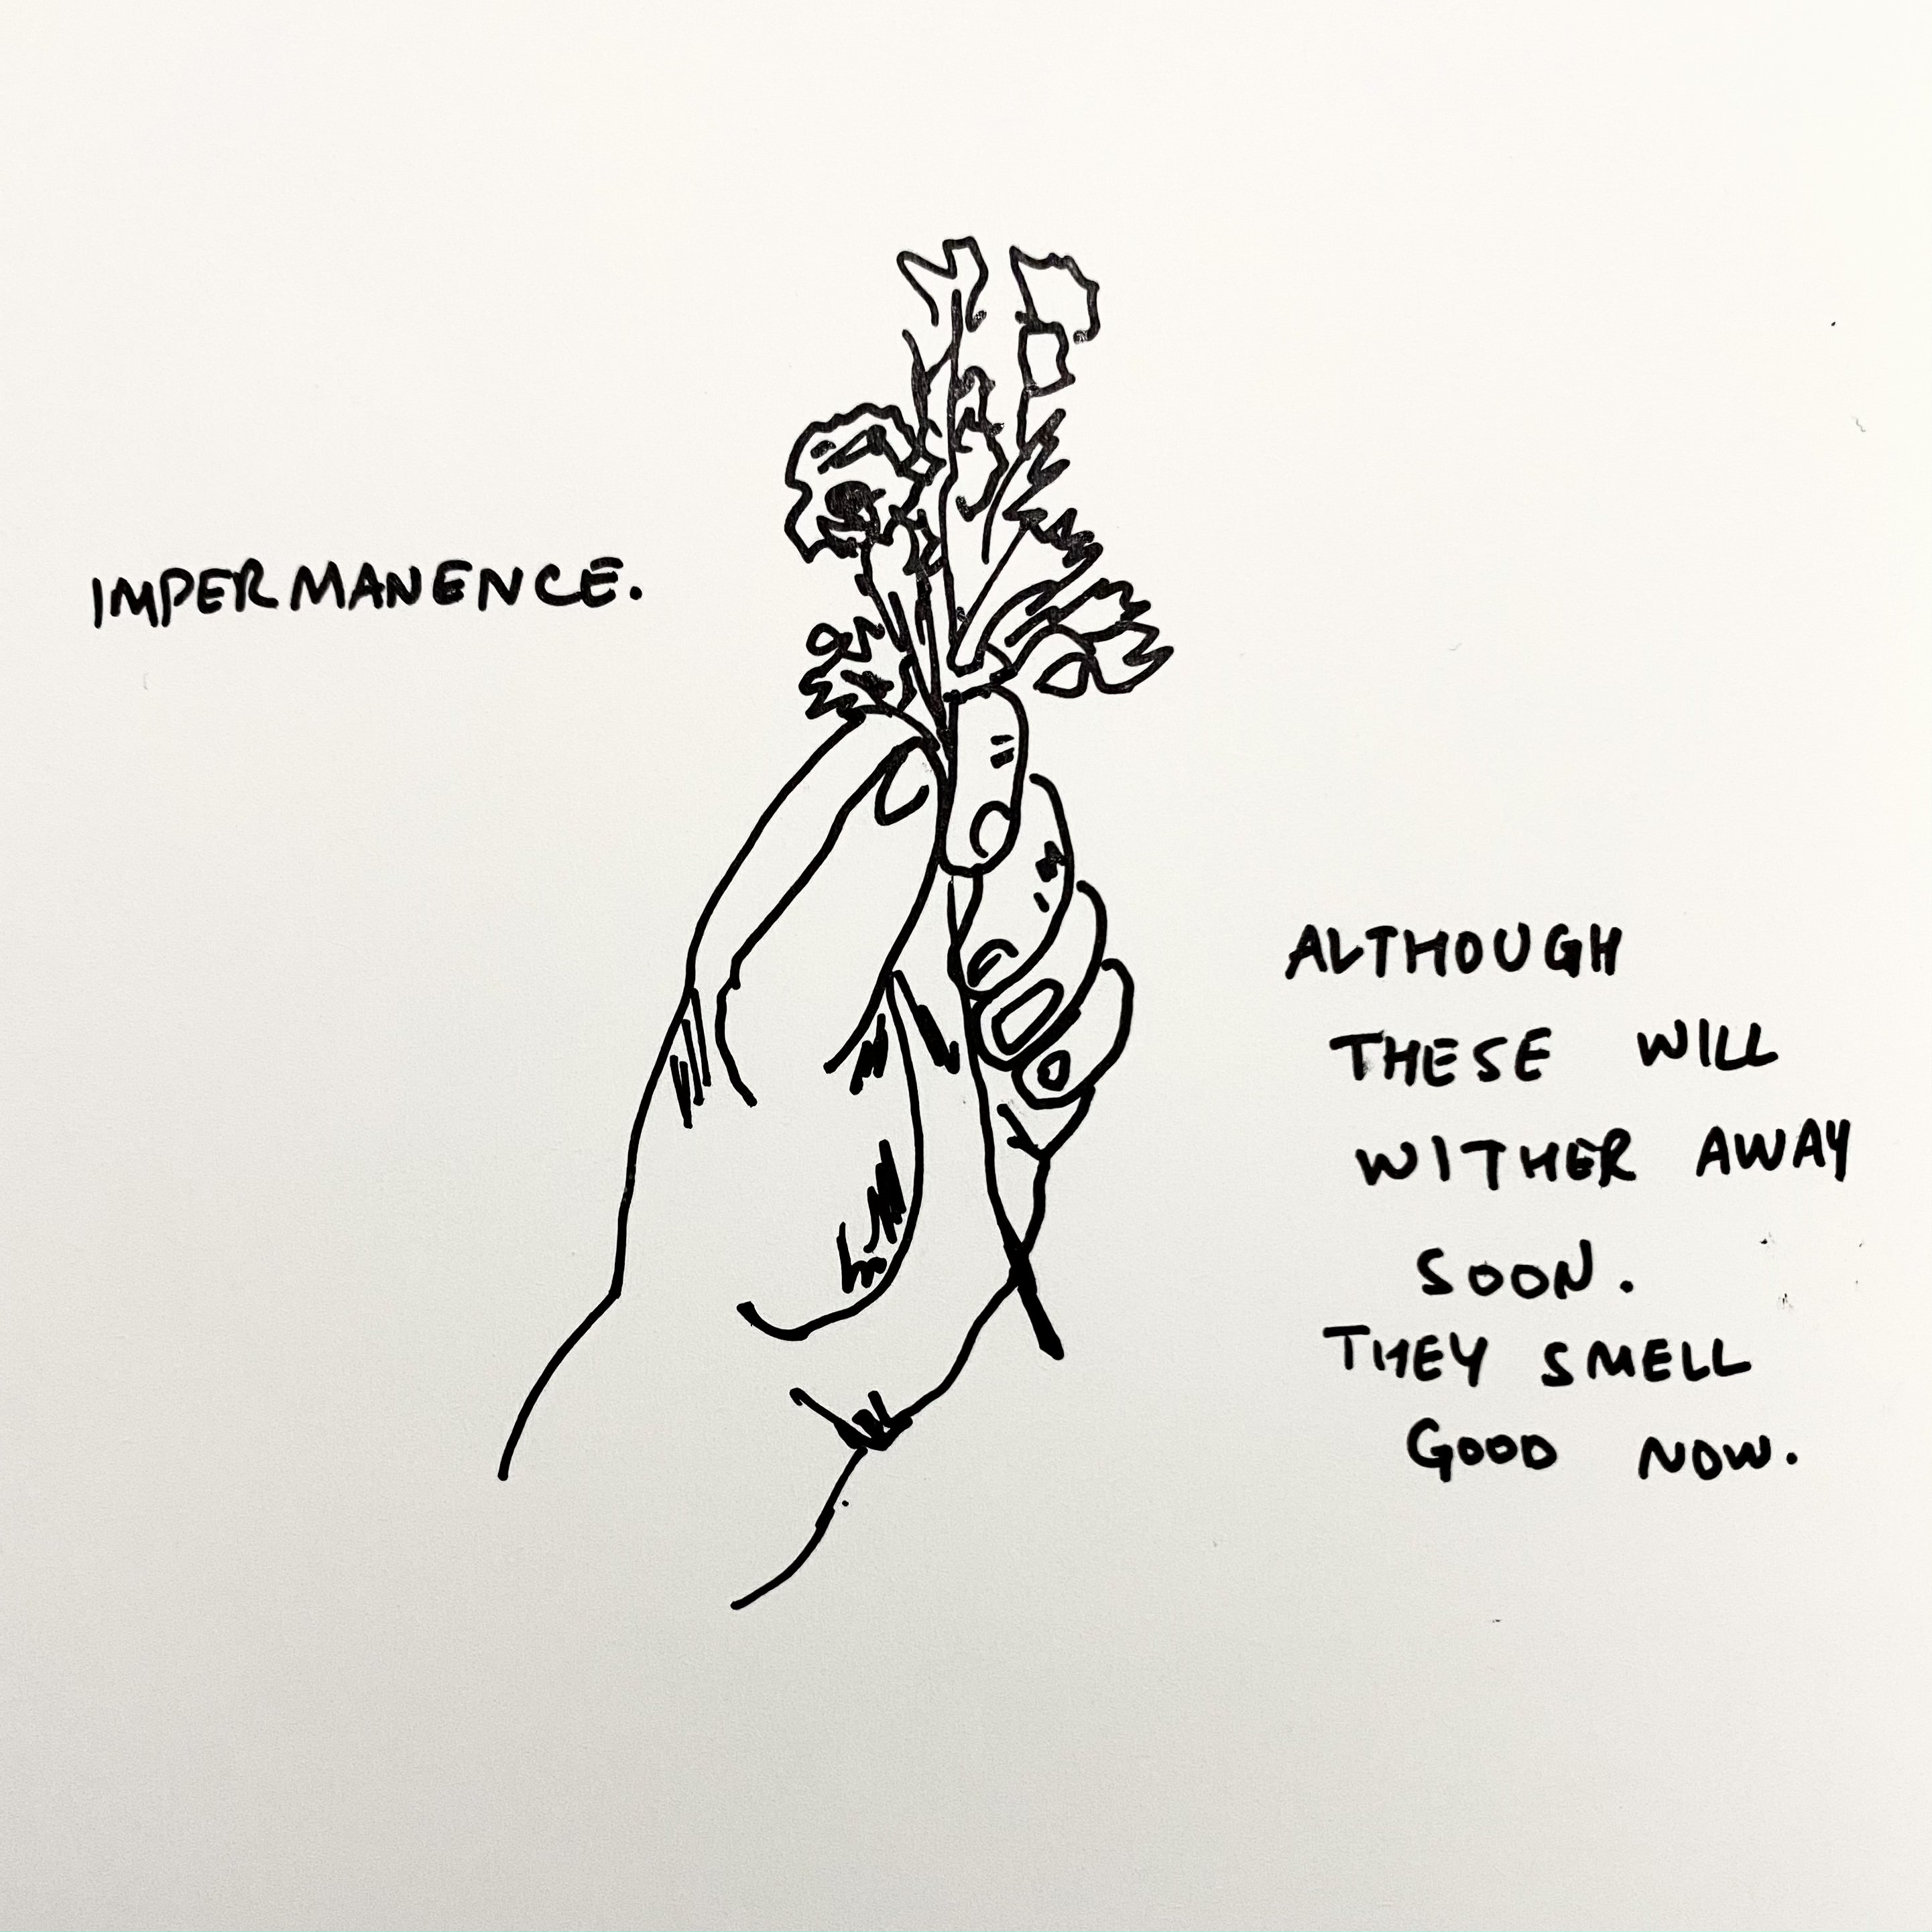 IMPERMANENCE.
ALTHOUGH
THESE WILL
WITHER AWAY
SOON.
THEY SMELL
GOOD NOW.